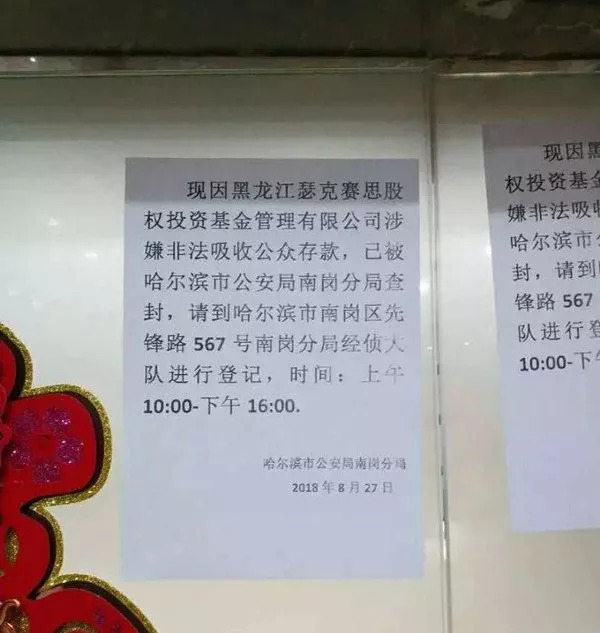 现因黑龙江瑟克赛思股
权投资基金管理有限公司涉
嫌非法吸收公众存款，已被
哈尔滨市公安局南岗分局查
封，请到哈尔滨市南岗区先
锋路 567 号南岗分局经侦大
队进行登记，时间：上午
10:00-下午 16:00.
哈尔滨市公安局南岗分局
2018 年 8 月 27 日
现因黑
权投资基金
嫌非法吸收
哈尔滨市公
封，请到哈
锋路 567
队进行登
10:00-下午